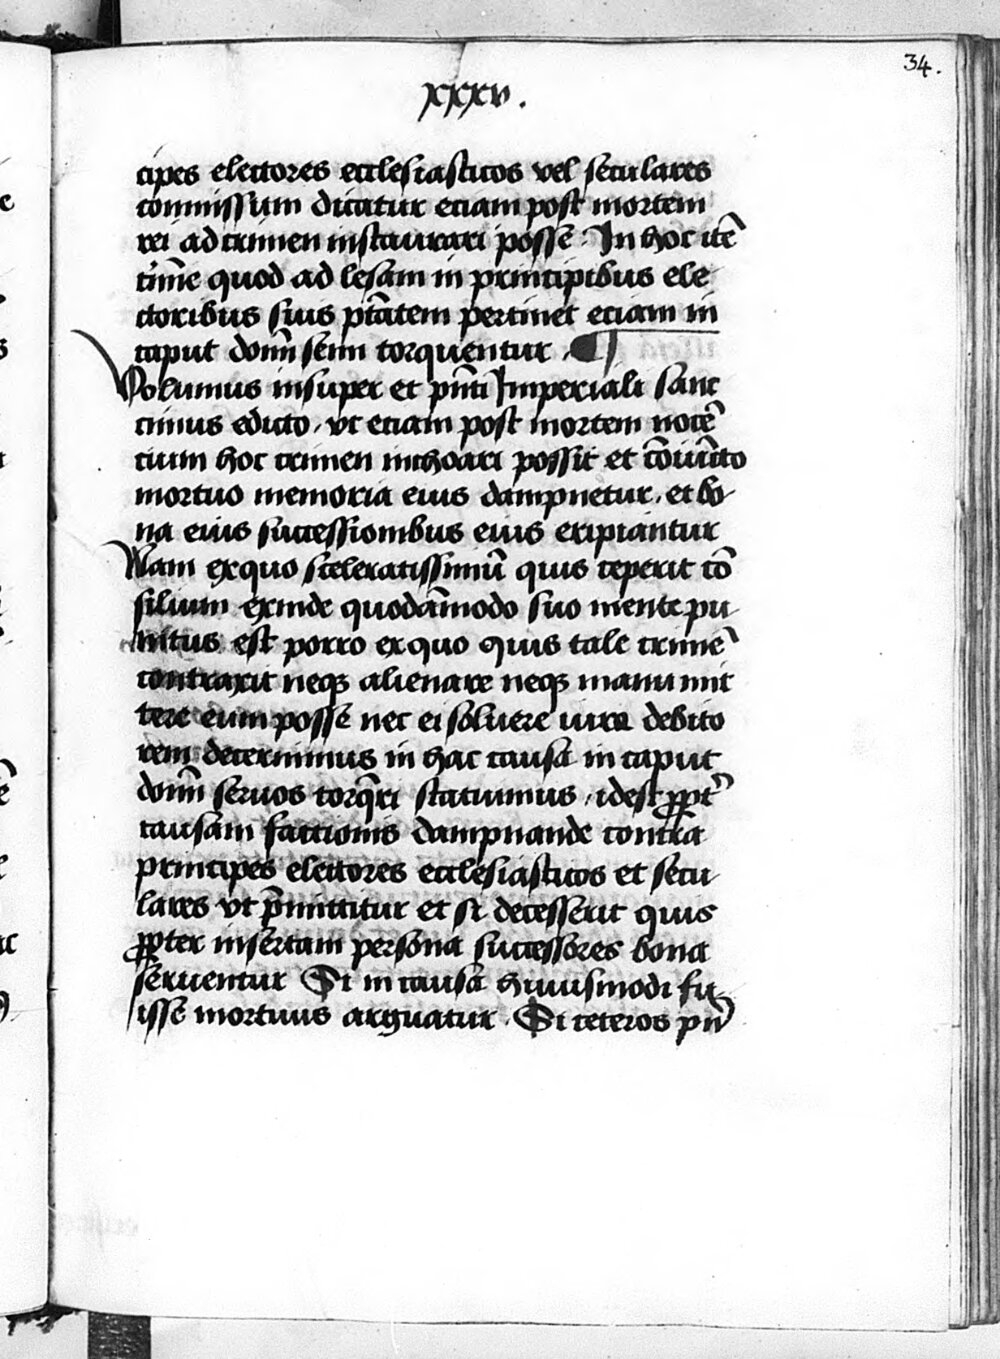 34.
xxxv.
cipes electores ecclesiasticos vel seculares
commissum dicatur eciam post mortem
rei ad crimen instaurari posse. In hoc itē
crīme quod ad lesam in principibus ele
ctoribus suis ptātem pertinet eciam in
caput domī serui torquentur. ¶
Volumus insuper et pn̄ti Imperiali sanc
cimus edicto. vt eciam post mortem nocē
cium hoc crimen inchoari possit et cōuicto
mortuo memoria eius dampnetur. et bo-
na eius successionibus eius eripiantur
Nam exquo sceleratissimū quis ceperit cō
silium exinde quodāmodo suo mente pu-
nitus est porro exquo quis tale crimē
contraxit neqȝ alienare neqȝ manu mit
tere eum posse nec ei soluere iure debito
rem decernimus in hac causa in caput
domī seruos torqueri statuimus. idest ꝓpt̄
causam faccionis dampnande contra
principes electores ecclesiasticos et secu-
lares vt p̄mittitur et si decesserit quis
ꝓpter insertam persona successores bona
seruentur Si in causa huiusmodi fu-
isse mortuus arguatur. Si ceteros pn̄